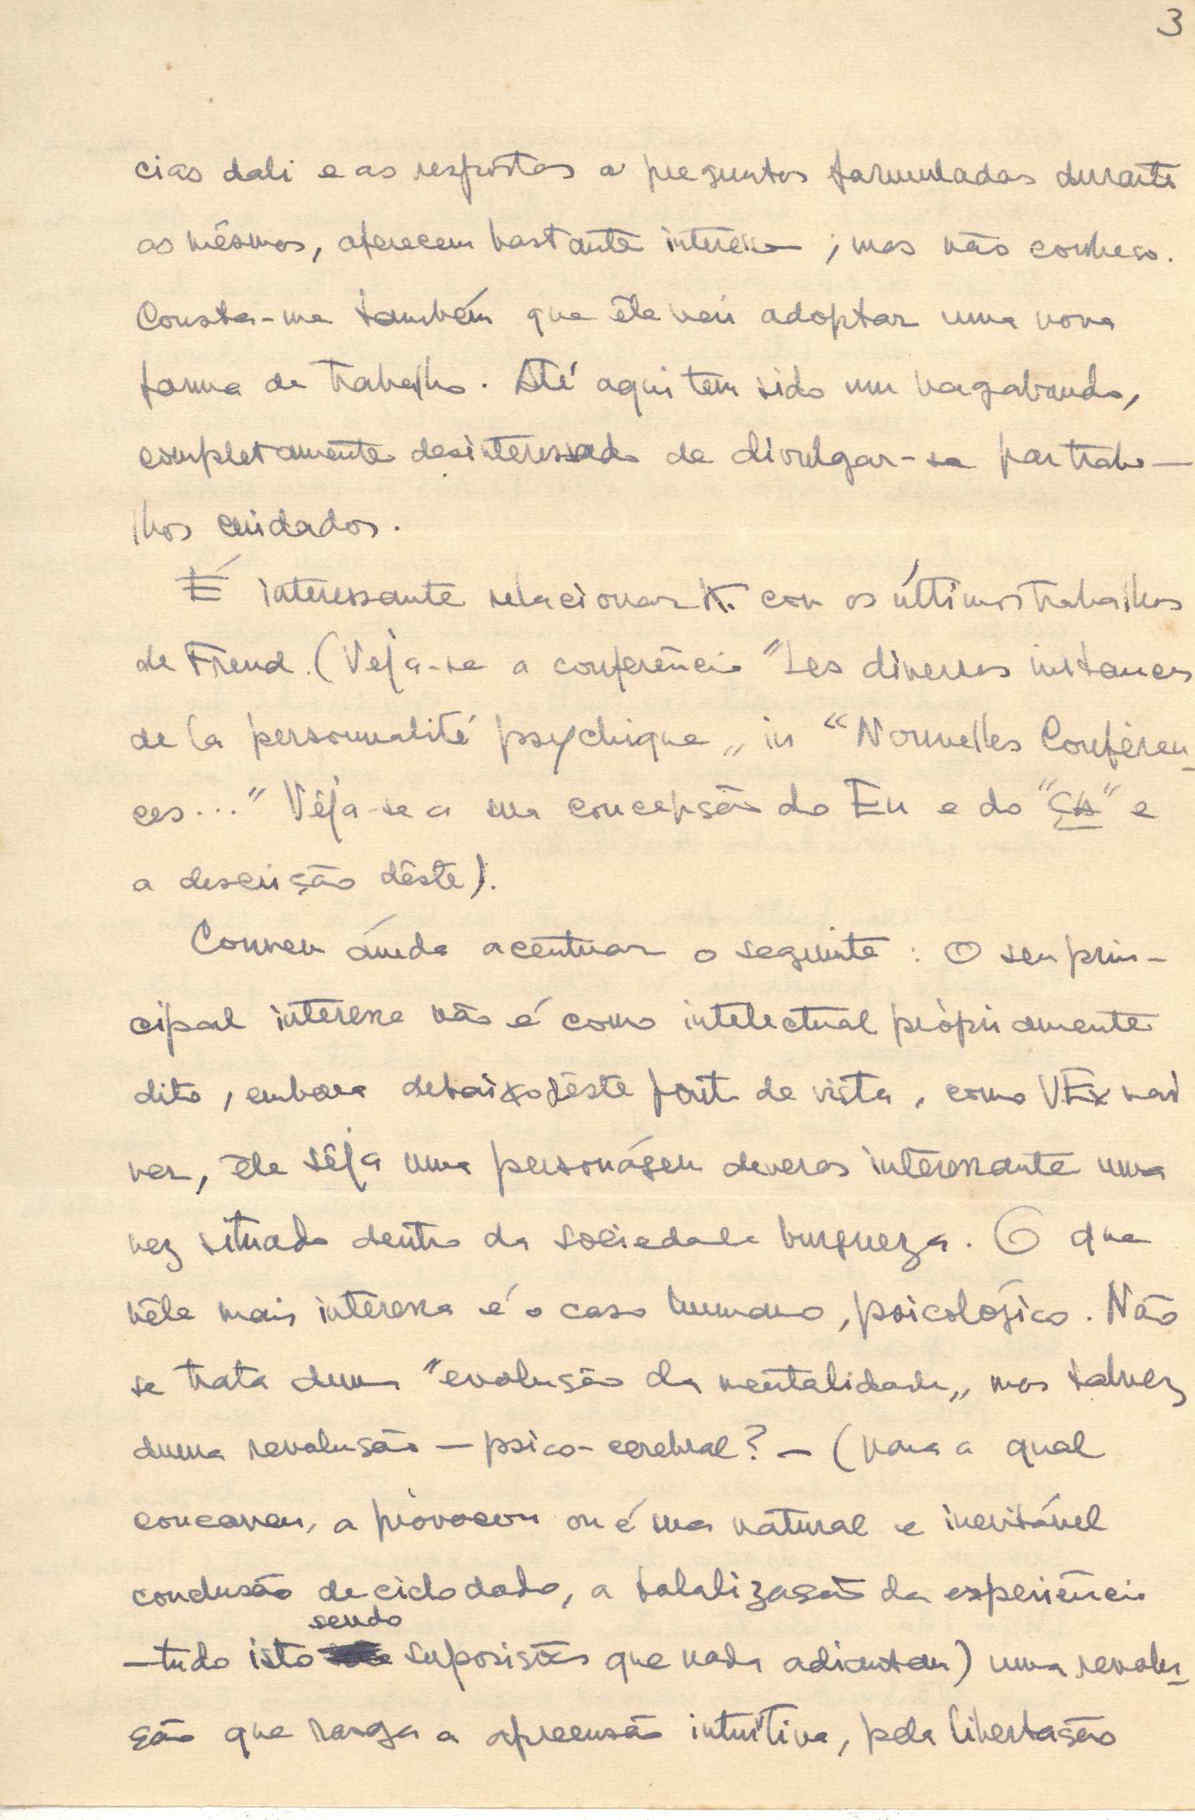 3
cias dali e as respostas a preguntas formuladas durante
as mêsmas, oferecem bastante interesse ; mas não conheço.
Consta-me também que êle vai adoptar uma nova
forma de trabalho. Até aqui tem sido um vagabundo,
completamente desinteressado de divulgar-se por traba-
lhos cuidados.
É interessante relacionar K. com os últimos trabalhos
de Freud. (Veja-se a conferência "Les diverses instances
de la personnalité psychique„ in "Nouvelles Conféren-
ces..." Vêja-se a sua concepção do Eu e do "ÇA" e
a descrição dêste).
Convem áinda acentuar o seguinte : O seu prin-
cipal interesse não é como intelectual pròpriamente
dito, embora debaixo dêste ponto de vista, como VEx vai
ver, êle sêja uma personágem deveras interessante uma
vez situado dentro da sociedade burgueza. O que
nêle mais interessa é o caso humano, psicológico. Não
se trata duma "evolução da mentalidade„ mas talvez
duma revolução — psico-cerebral? — (para a qual
concorreu, a provocou ou é sua natural e inevitável
conclusão de ciclo dado, a totalização da experiência
— tudo isto sendo suposições que nada adiantam) uma revolu-
ção que rasga a apreensão intuïtiva, pela libertação